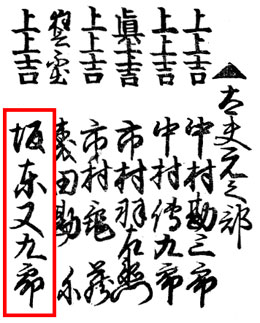 太夫元之部
上上吉 中村勘三郎
上上吉 中村傳九郎
眞上上吉 市村羽左衛門
上上吉 市村亀蔵
森田勘弥
上上吉 坂東又九郎